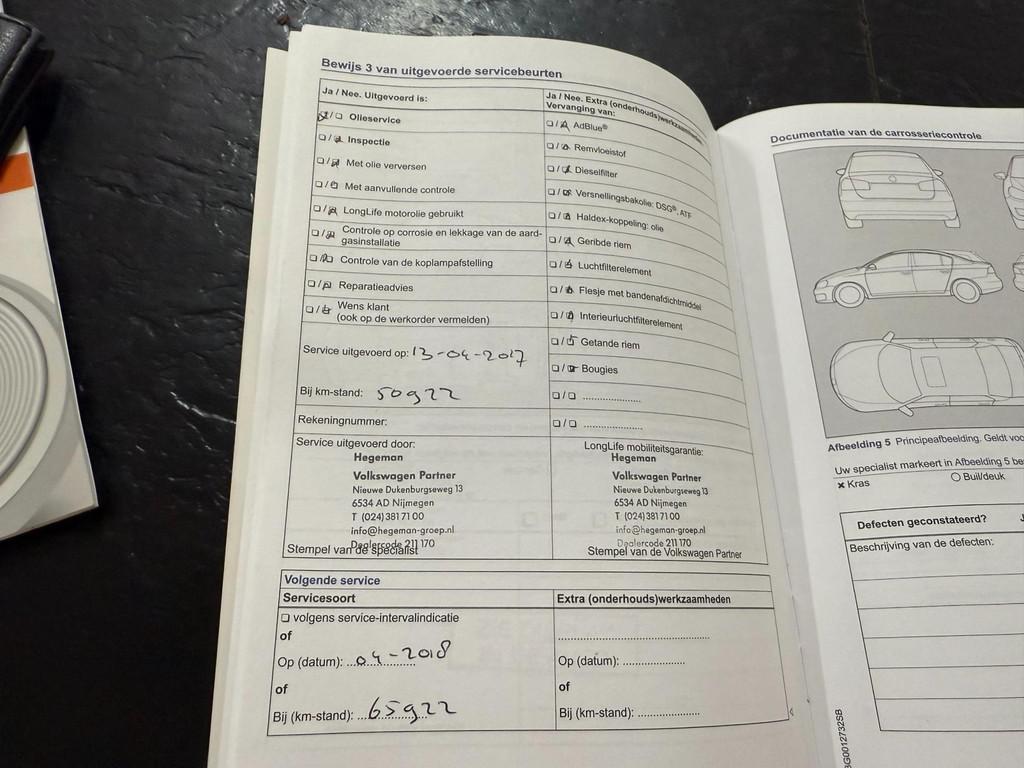 Bewijs 3 van uitgevoerde servicebeurten
Ja / Nee. Uitgevoerd is:
Olieservice
Inspectie
Met olie verversen
Met aanvullende controle
LongLife motorolie gebruikt
Controle op corrosie en lekkage van de aard-
gasinstallatie
Controle van de koplampafstelling
Reparatieadvies
Wens klant
(ook op de werkorder vermelden)
Service uitgevoerd op: 13-04-2017
Bij km-stand: 50922
Rekeningnummer:
Ja / Nee. Extra (onderhouds)werkzaamheden
Vervanging van:
AdBlue®
Remvloeistof
Dieselfilter
Versnellingsbakolie: DSG®, ATF
Haldex-koppeling: olie
Geribde riem
Luchtfilterelement
Flesje met bandenafdichtmiddel
Interieurluchtfilterelement
Getande riem
Bougies
Service uitgevoerd door:
Hegeman
Volkswagen Partner
Nieuwe Dukenburgseweg 13
6534 AD Nijmegen
T (024) 381 71 00
info@hegeman-groep.nl
Dealercode 211 170
Stempel van de specialist
LongLife mobiliteitsgarantie:
Hegeman
Volkswagen Partner
Nieuwe Dukenburgseweg 13
6534 AD Nijmegen
T (024) 381 71 00
info@hegeman-groep.nl
Dealercode 211 170
Stempel van de Volkswagen Partner
Volgende service
Servicesoort
volgens service-intervalindicatie
of
Op (datum): 04-2018
of
Bij (km-stand): 65922
Extra (onderhouds)werkzaamheden
Op (datum):
of
Bij (km-stand):
Documentatie van de carrosseriecontrole
Afbeelding 5 Principeafbeelding. Geldt
Uw specialist markeert in Afbeelding 5
Kras
Buil/deuk
Defecten geconstateerd?
Beschrijving van de defecten: